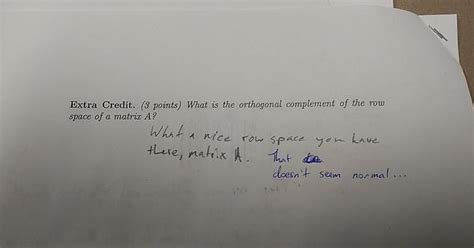 Extra Credit. (3 points) What is the orthogonal complement of the row
space of a matrix A?
What a nice row space you have
there, matrix A. That
doesn't seem normal...